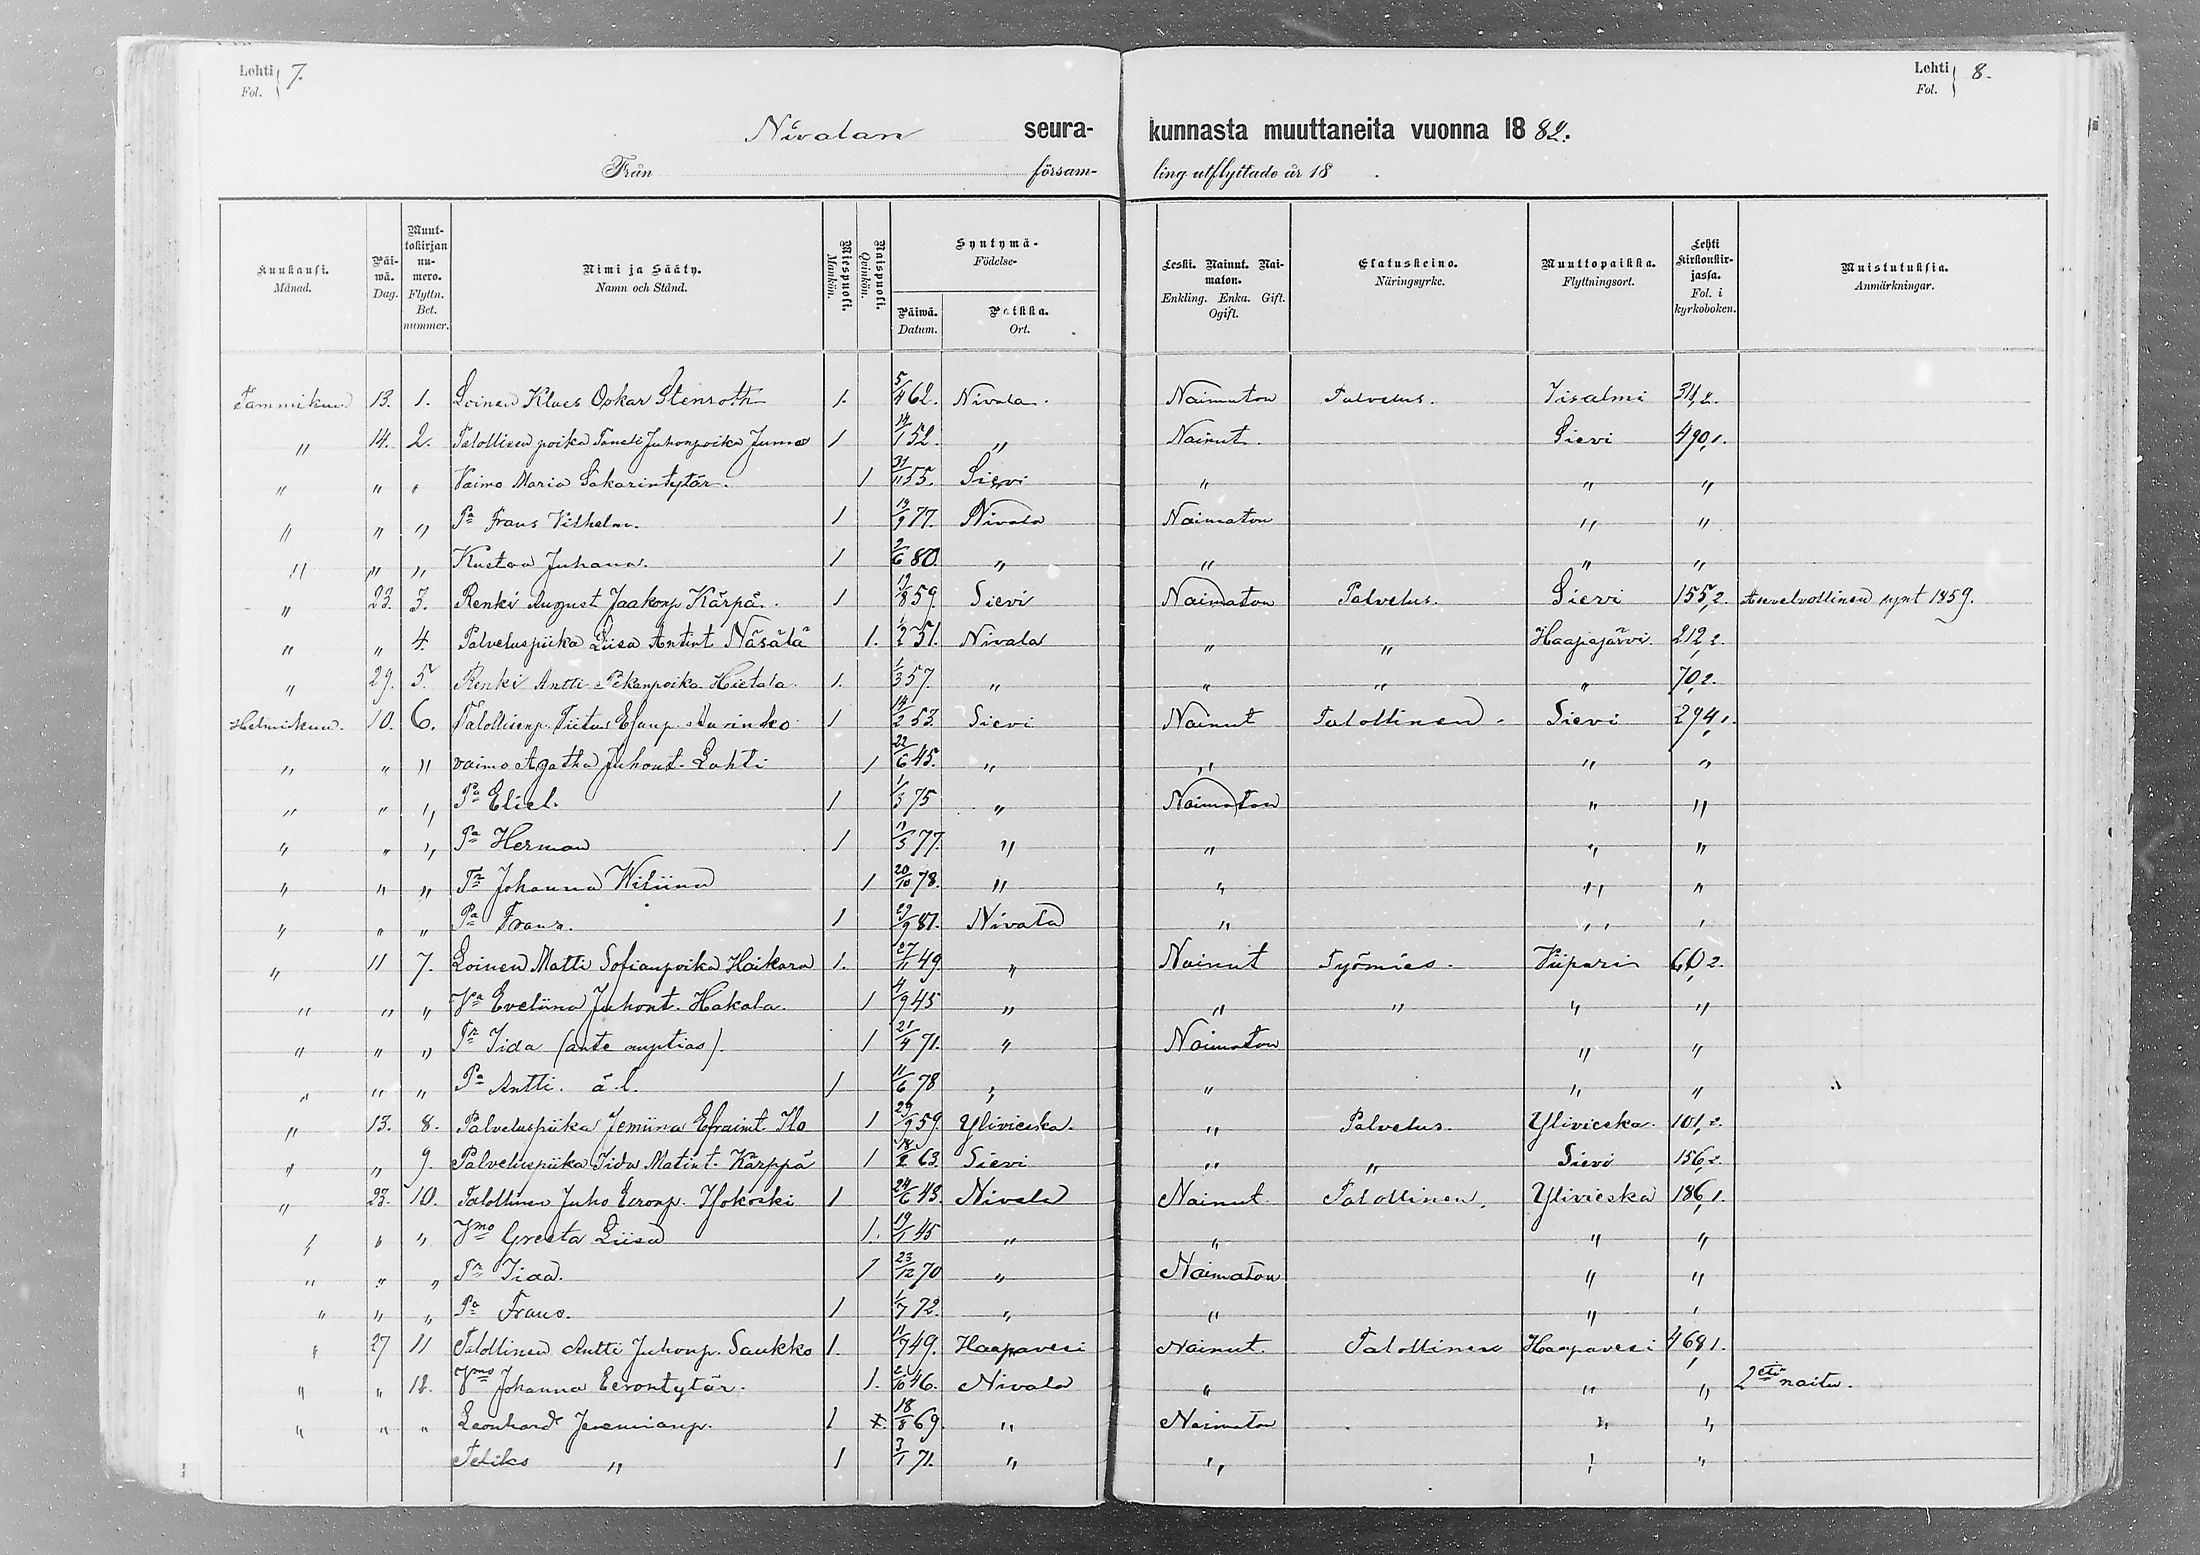 Lehti Fol. } 7.
Lehti Fol. } 8.
Nivalan seura- kunnasta muuttaneita vuonna 18 82.
Från försam- ling utflyttade år 18 .
Kuukausi. Månad. | Päi-wä. Dag. | Muut-tokirjan nu-mero. Flyttn. Bet. nummer. | Nimi ja Sääty. Namn och Stånd. | Miespuoli. Mankön. | Naispuoli. Qvinkön. | Syntymä- Födelse- Päiwä. Datum. | Paikka. Ort. | Leski. Nainut. Nai-maton. Enkling. Enka. Gift. Ogift. | Elatuskeino. Näringsyrke. | Muuttopaikka. Flyttningsort. | Lehti kirkonkir-jassa. Fol. i kyrkoboken. | Muistutuksia. Anmärkningar.
Tammikuu 13. 1. Loinen Klaes Oskar Stenroth 1. 5/4 62. Nivala. Naimaton Palvelus. Iisalmi 311,2.
" 14. 2. Talollisen poika Taneli Juhonpoika Juma 1 14/1 52. " Nainut. Sievi 490,1.
" " " Vaimo Maria Sakarintytär. 1 31/11 55. Sievi " " "
" " " Pa Frans Vilhelm. 1 19/9 77. Nivala Naimaton " "
" " " Kustaa Juhana. 1 2/6 80. " " " "
" 23. 3. Renki August Jaakonp Kärpä. 1 19/8 59. Sievi Naimaton Palvelus. Sievi 155,2. Asevelvollinen synt 1859.
" " 4. Palveluspiika Liisa Antint Näsälä 1. 1/2 51. Nivala " " Haapajärvi. 212,2.
" 29. 5. Renki Antti Pekanpoika Hietala. 1. 1/3 57. " " " " 70,2.
Helmikuu. 10. 6. Talollisenp. Tiitus Esaup. Marinko 1 14/2 53. Sievi Nainut Talollinen. Sievi 294,1.
" " " vaimo Agatha Juhont. Lahti 1 22/6 45. " " " "
" " " Pa Eliel. 1 1/3 75 " Naimaton " "
" " " Pa Herman 1 11/3 77. " " " "
" " " Tr Johanna Wiliina 1 20/10 78. " " " "
" " " Pa Frans. 1 29/9 81. Nivala " " "
" 11 7. Loinen Matti Sofianpoika Haikara 1. 27/11 49. " Nainut Työmies. Viipuri 60,2.
" " " Va Eveliina Juhont. Hakala. 1 4/9 45 " " " " "
" " " Tr Iida (ante nuptias). 1 21/4 71. " Naimaton " "
" " " Pa Antti. ä. l. 1 11/6 78 " " " "
" 13. 8. Palveluspiika Jemiina Efraimt. Ilo 1 29/9 59. Ylivieska. " Palvelus. Ylivieska. 101,2.
" " 9. Palveluspiika Iida Matint. Kärppä 1 18/2 63. Sievi " " Sievi 156,2.
" 23. 10. Talollinen Juho Eeronp. Isokoski 1 24/6 43. Nivala Nainut. Talollinen. Ylivieska 186,1.
" " " Vmo Greeta Liisa 1. 19/1 45 " " " "
" " " Tr Iida. 1 23/12 70 " Naimaton " "
" " " Pa Frans. 1 1/7 72. " " " "
" 27 11 Talollinen Antti Juhonp. Saukko 1. 11/7 49. Haapavesi Nainut. Talollinen Haapavesi 468,1.
" " 12. Vmo Johanna Eerontytär. 1. 2/10 46. Nivala " " " 2eti naitu.
" " " Leonhard Jeremianp. 1 18/8 69. " Naimaton " "
Feliks " 1 3/1 71. " " " "